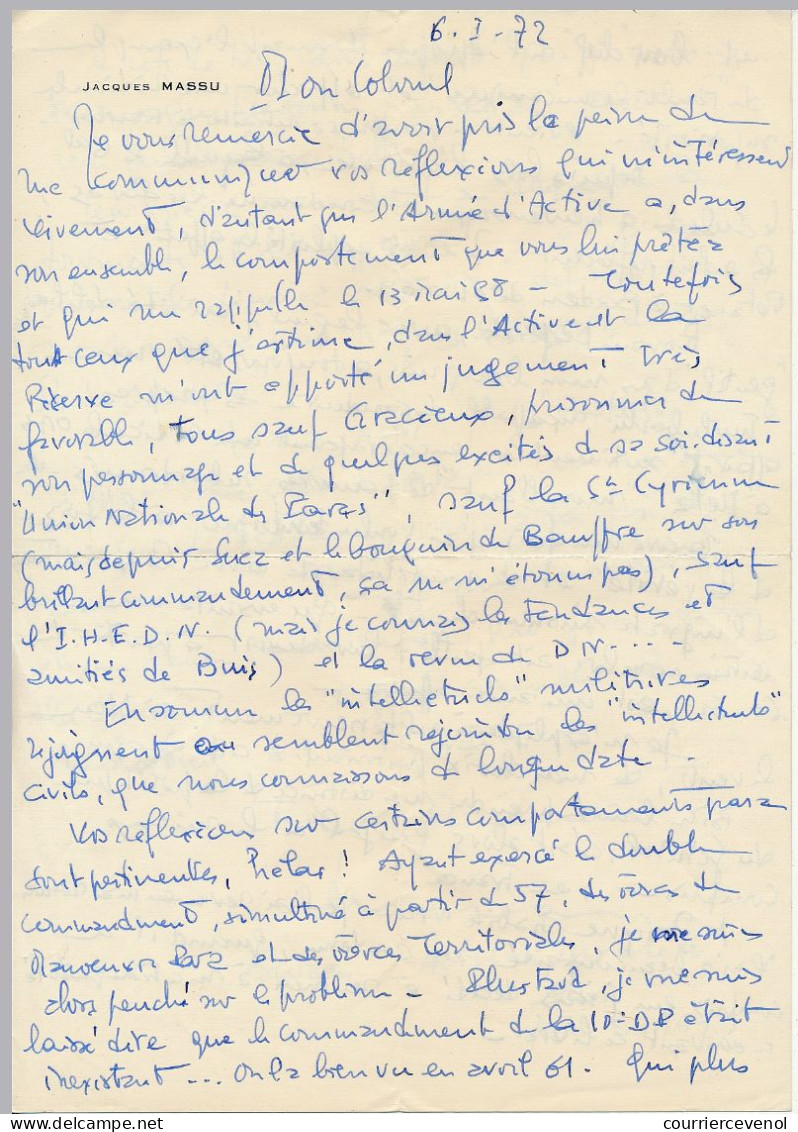 6.I-72
Jacques MASSU
Mon Colonel
Je vous remercie d'avoir pris la peine de
me communiquer vos réflexions qui m'intéressent
vivement, d'autant que l'Armée d'Active a, dans
son ensemble, le comportement que vous lui prêtez
et qui me rappelle le 13 mai 58 - Toutefois
tout ceux que j'estime, dans l'Active et la
Réserve m'ont apporté un jugement très
favorable, tous sauf Gracieux, prisonnier de
son personnage et de quelques excités de sa soi-disant
"Union Nationale des Paras", sauf la St Cyrienne
(mais depuis Suez et le bouquin de Bauffre sur son
brillant commandement, ça ne m'étonne pas), sauf
l'I.H.E.D.N. (mais je connais les tendances et
amitiés de Buis) et la revue de DN....
En somme les "intellectuels" militaires
rejoignent ou semblent rejoindre les "intellectuels"
civils, que nous connaissons de longue date -
Vos réflexions sur certains comportements paras
sont pertinentes, hélas! Ayant exercé le double
commandement, simultané à partir de 57, des forces de
Manoeuvre et des forces Territoriales, je me suis
alors penché sur le problème - Plus tard, je me suis
laissé dire que le commandement de la 10e DP était
inexistant... On l'a bien vu en avril 61. Qui plus
courriercevenol.com